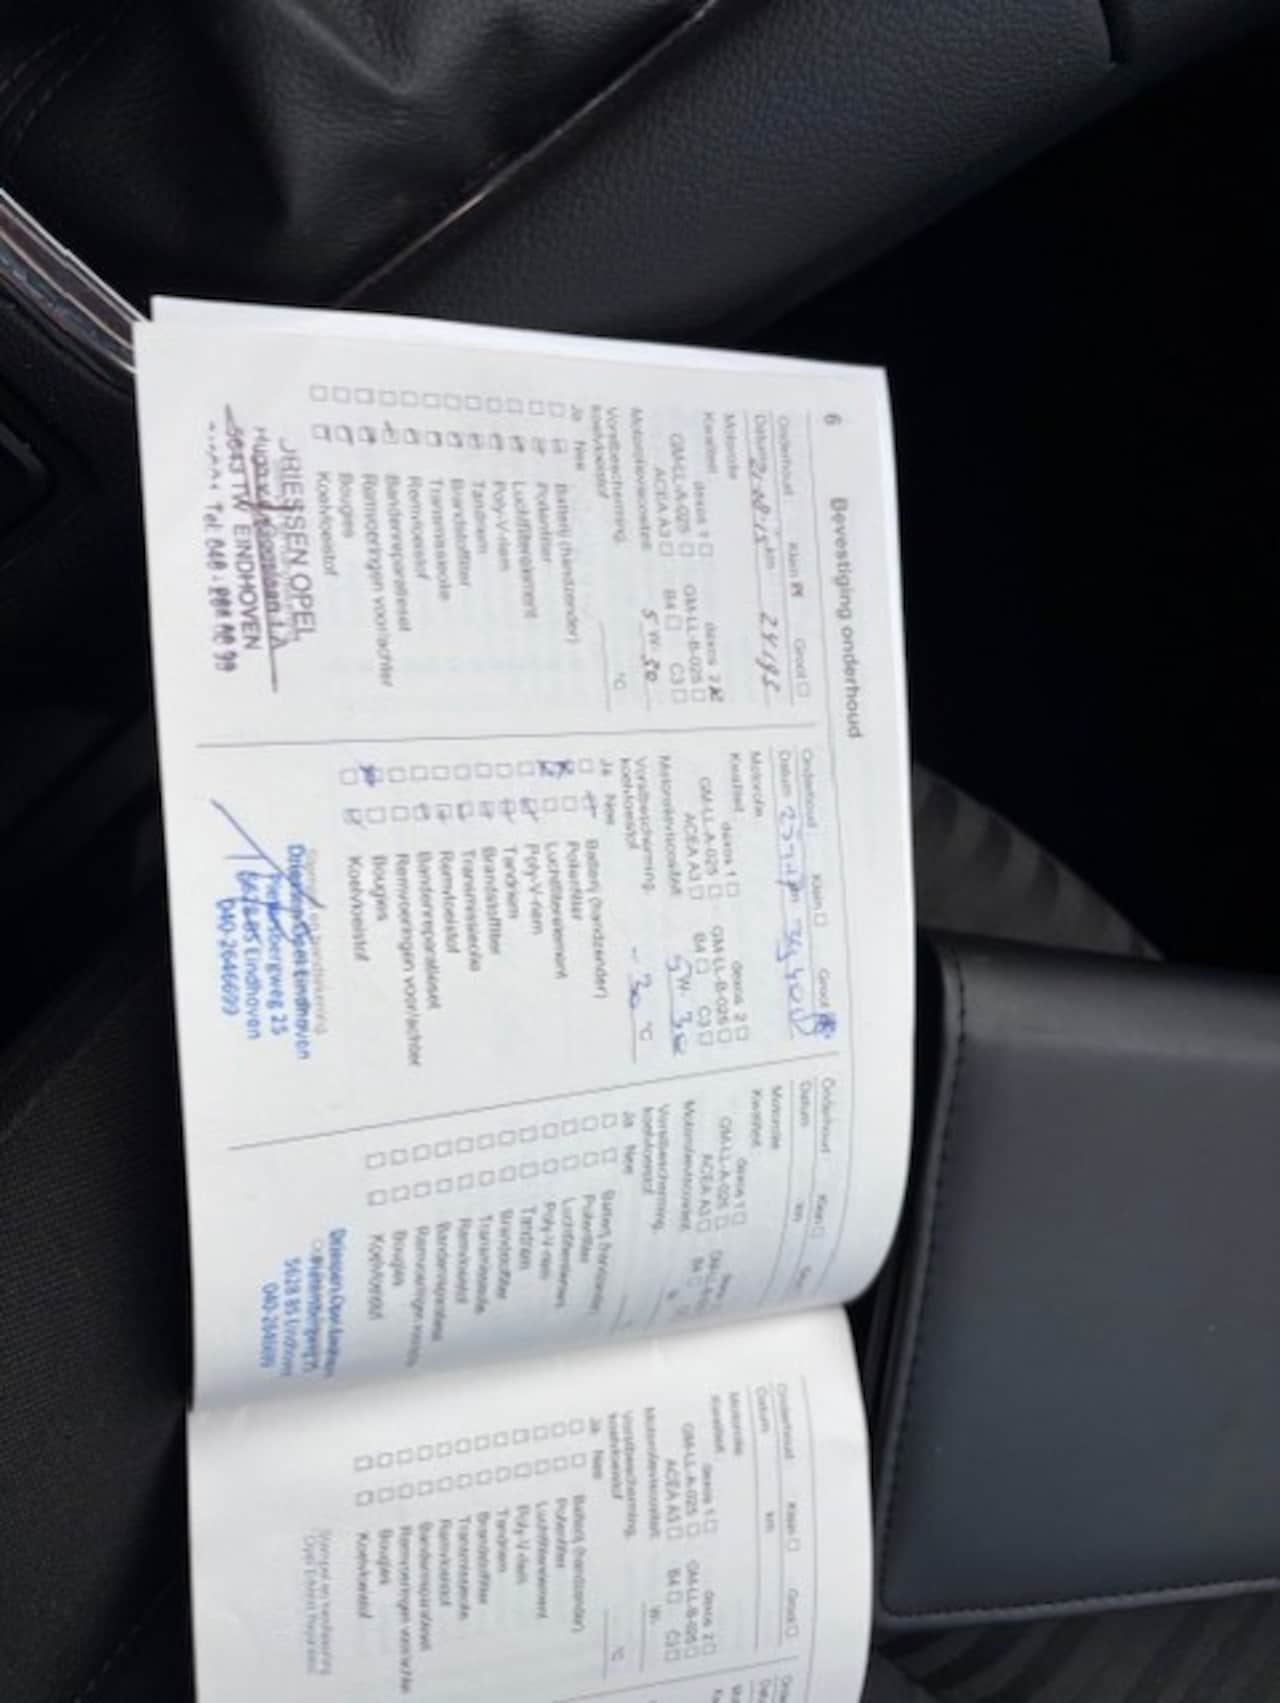 6
Bevestiging onderhoud
Onderhoud Klein Groot
Datum 21.08.15 km 24195
Motorolie
Kwaliteit dexos 1 dexos 2
GM-LL-A-025 GM-LL-B-025
ACEA A3 B4 C3
Motorolieviscositeit 5 W- 30
Vorstbescherming
koelvloeistof °C
Ja Nee
Batterij (handzender)
Pollenfilter
Luchtfilterelement
Poly-V-riem
Tandriem
Brandstoffilter
Transmissieolie
Remvloeistof
Bandenreparatieset
Remvoeringen voor/achter
Bougies
Koelvloeistof
DRIESSEN OPEL
5643 TW EINDHOVEN
Tel. 040
Onderhoud Klein Groot
Datum km
Motorolie
Kwaliteit dexos 1 dexos 2
GM-LL-A-025 GM-LL-B-025
ACEA A3 B4 C3
Motorolieviscositeit 5 W- 30
Vorstbescherming
koelvloeistof - 30 °C
Ja Nee
Batterij (handzender)
Pollenfilter
Luchtfilterelement
Poly-V-riem
Tandriem
Brandstoffilter
Transmissieolie
Remvloeistof
Bandenreparatieset
Remvoeringen voor/achter
Bougies
Koelvloeistof
Driessen Opel Eindhoven
5628 BS Eindhoven
040-2646699
Onderhoud Klein
Datum km
Motorolie
Kwaliteit dexos 1
GM-LL-A-025
ACEA A3 B4
Motorolieviscositeit
Vorstbescherming
koelvloeistof
Ja Nee
Batterij (handzender)
Pollenfilter
Luchtfilterelement
Poly-V-riem
Tandriem
Brandstoffilter
Transmissieolie
Remvloeistof
Bandenreparatieset
Remvoeringen
Bougies
Koelvloeistof
Driessen Opel Eindhoven
5628 BS Eindhoven
040-2646699
Onderhoud Klein Groot
Datum km
Motorolie
Kwaliteit dexos 1 dexos 2
GM-LL-A-025 GM-LL-B-025
ACEA A3 B4 C3
Motorolieviscositeit W-
Vorstbescherming
koelvloeistof °C
Ja Nee
Batterij (handzender)
Pollenfilter
Luchtfilterelement
Poly-V-riem
Tandriem
Brandstoffilter
Transmissieolie
Remvloeistof
Bandenreparatieset
Remvoeringen voor/achter
Bougies
Koelvloeistof
Stempel en handtekening